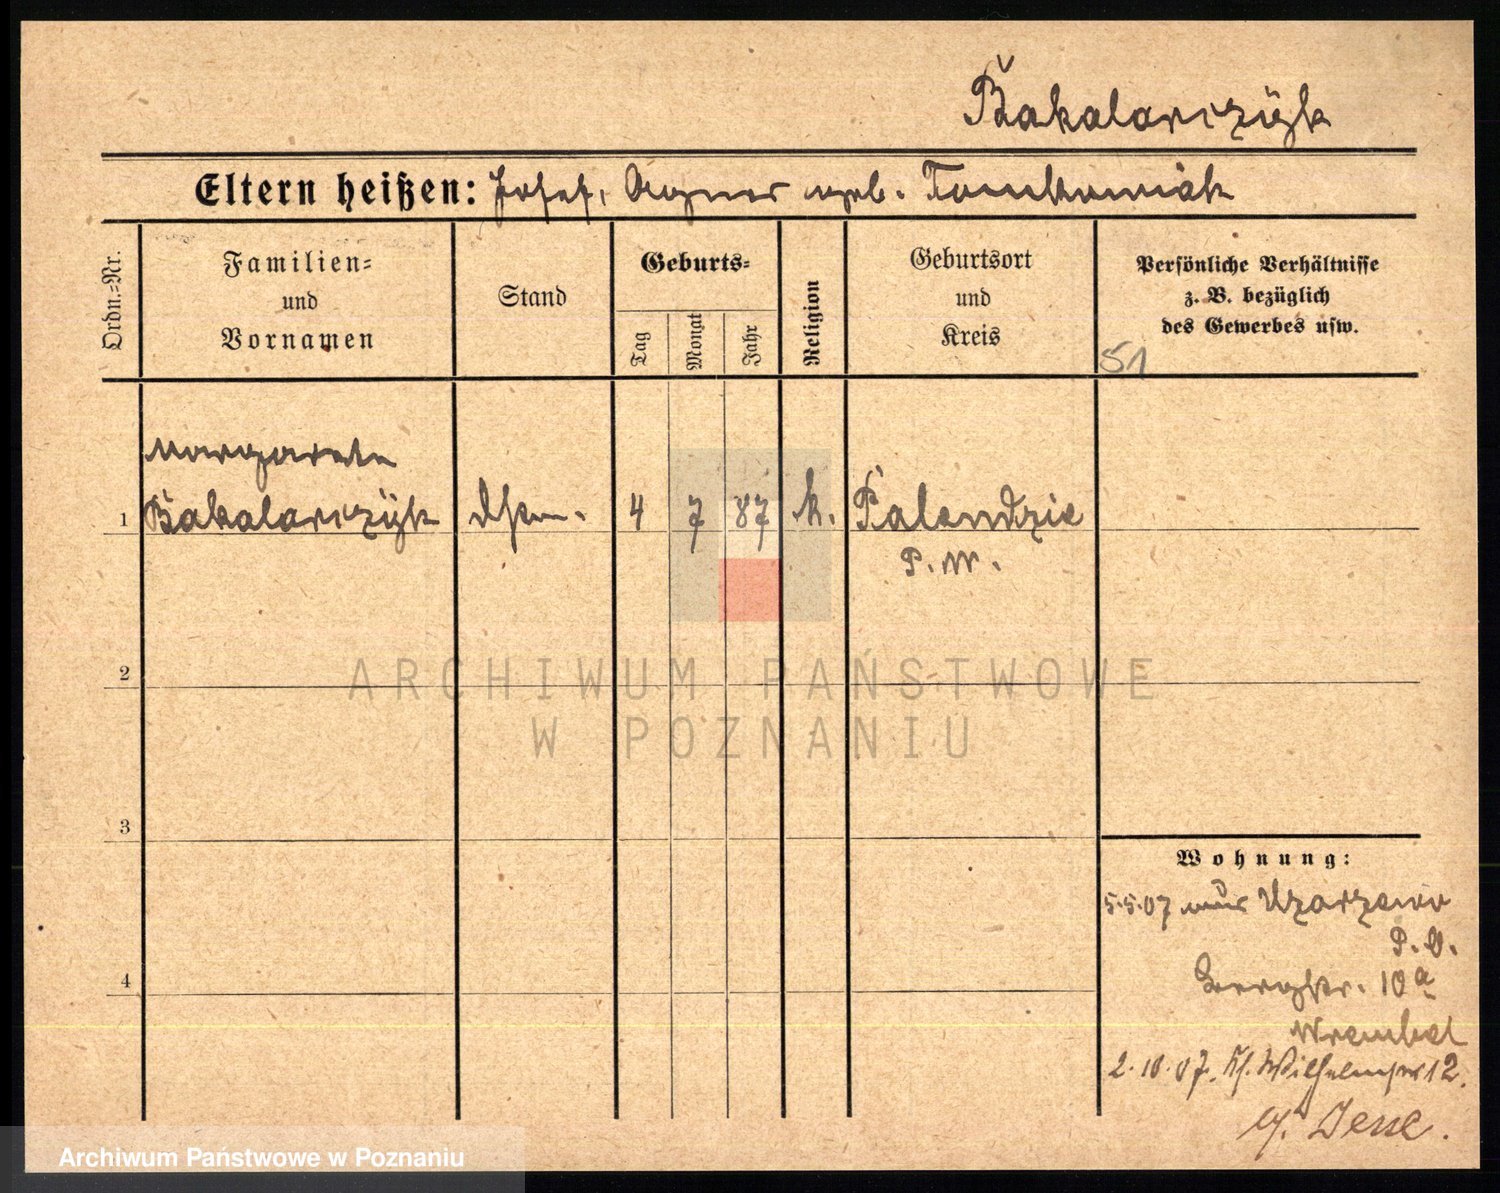 Bakalarczyk
Eltern heißen: Josef, Agnes geb. Tomkowiak
Ordn.=Nr.
Familien=
und
Vornamen
Stand
Geburts=
Tag
Monat
Jahr
Religion
Geburtsort
und
Kreis
Persönliche Verhältnisse
z. B. bezüglich
des Gewerbes usw.
51
Margarete
1 Bakalarczyk 4 7 87 k. Palendzie
P. W.
2
3
4
ARCHIWUM PAŃSTWOWE
W POZNANIU
Wohnung:
5.5.07 aus Uzarzewo
P. O.
Bergstr. 10a
Wrembel
2.10.07. Wilhelmstr 12.
Jesse.
Archiwum Państwowe w Poznaniu